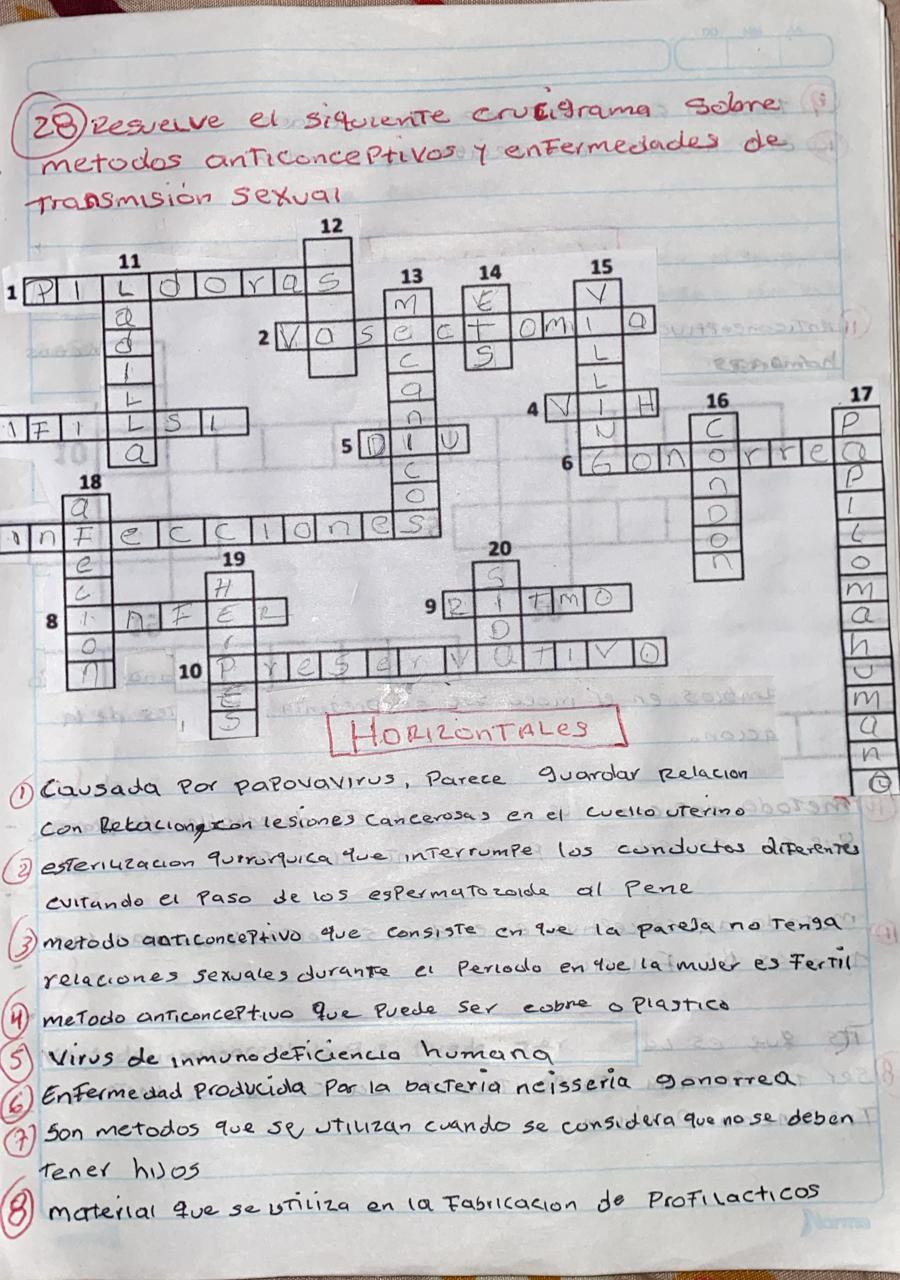 28) Resuelve el siguiente crucigrama sobre
metodos anticonceptivos y enfermedades de
transmisión sexual
12
11
1 PILdoras
13 14 15
2 Vasectomia
4 VIH
16 17
5 DIU
6 Gonorrea
18
infecciones
19 20
8
9 RITMO
10 Preservativo
HORIZONTALES
① Causada por papovavirus, Parece guardar Relacion
con lesiones cancerosas en el cuello uterino
② esterilizacion quirurquica que interrumpe los conductos diferentes
evitando el Paso de los espermatozoide al Pene
③ metodo anticonceptivo que consiste en que la pareja no Tenga
relaciones sexuales durante el Periodo en que la mujer es Fertil
④ metodo anticonceptivo que Puede ser cobre o Plastico
⑤ Virus de inmunodeficiencia humana
⑥ Enfermedad producida por la bacteria neisseria gonorrea
⑦ Son metodos que se utilizan cuando se considera que no se deben
tener hijos
⑧ material que se utiliza en la Fabricacion de Profilacticos
Norma